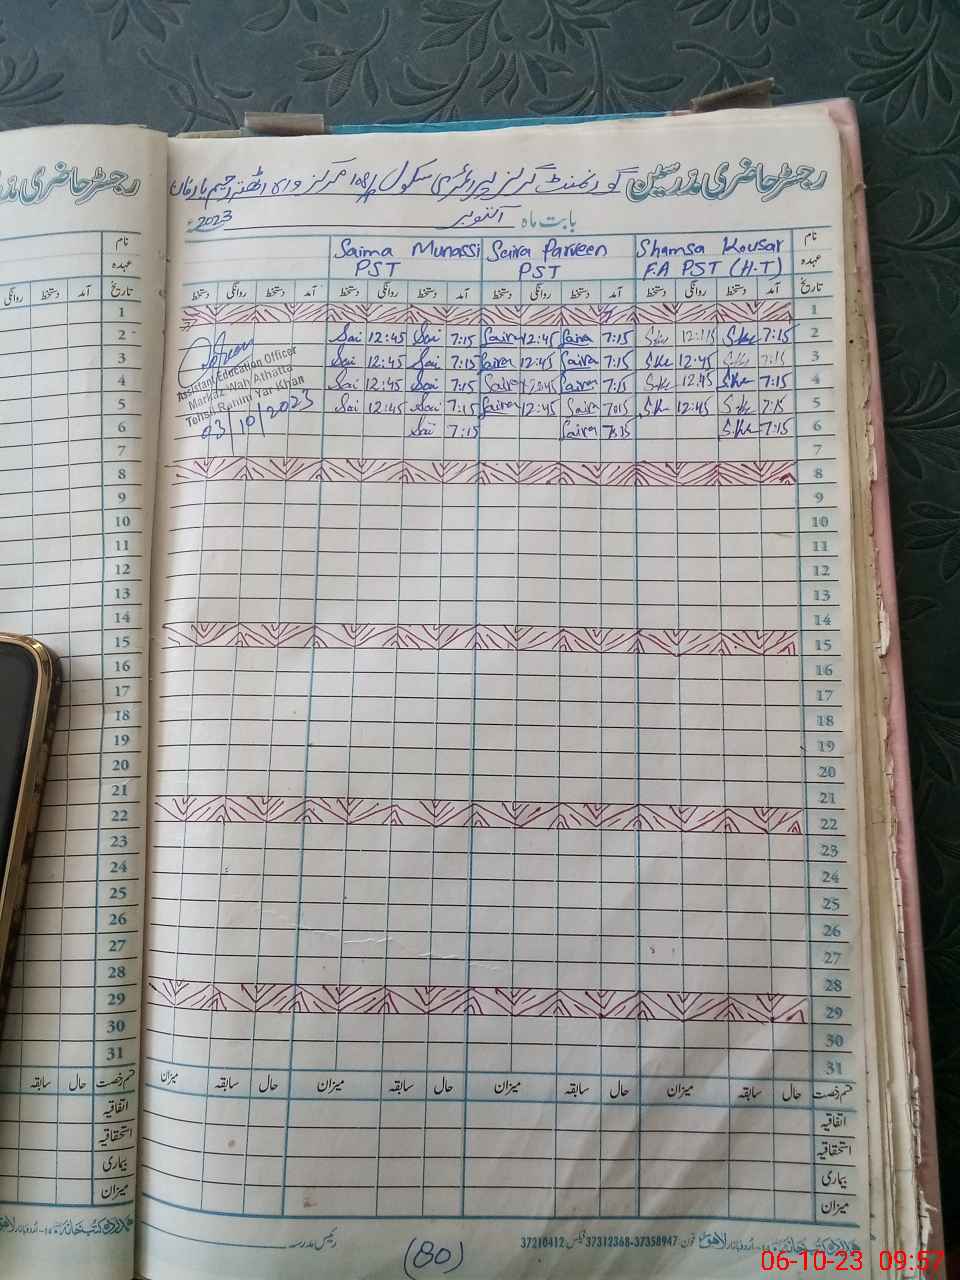 رجسٹر حاضری مدرسین گورنمنٹ گرلز پرائمری سکول
بابت ماہ اکتوبر 2023ء
نام Shamsa Kousar Saira Parveen Saima Munassi
عہدہ F.A PST (H.T) PST PST
تاریخ آمد دستخط روانگی دستخط آمد دستخط روانگی دستخط آمد دستخط روانگی دستخط آمد دستخط روانگی دستخط
1
2 7:15 12:45 7:15 Saira 12:45 Saira 7:15 Sai 12:45 Sai
3 7:15 12:45 7:15 Saira 12:45 Saira 7:15 Sai 12:45 Sai
4 7:15 12:45 7:15 Saira 12:45 Saira 7:15 Sai 12:45 Sai
5 7:15 12:45 7:15 Saira 12:45 Saira 7:15 Sai 12:45 Sai
6 7:15 7:15 Saira 7:15 Sai
Assistant Education Officer
Markaz Wah Athatta
Tehsil Rahim Yar Khan
03/10/2023
7
8
9
10
11
12
13
14
15
16
17
18
19
20
21
22
23
24
25
26
27
28
29
30
31
قسم رخصت حال سابقہ میزان حال سابقہ میزان حال سابقہ میزان حال سابقہ میزان
اتفاقیہ
استحقاقیہ
بیماری
میزان
رئیس مدرسہ
اردو بازار لاہور فون 37312368-37358947 فیکس 37210412
(80)
رجسٹر حاضری
نام
عہدہ
تاریخ آمد دستخط روانگی
1
2
3
4
5
6
7
8
9
10
11
12
13
14
15
16
17
18
19
20
21
22
23
24
25
26
27
28
29
30
31
قسم رخصت حال سابقہ
اتفاقیہ
استحقاقیہ
بیماری
میزان
06-10-23 09:57